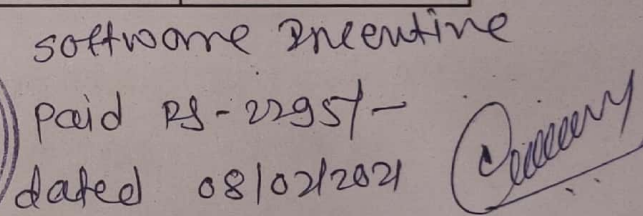 software Incentive
paid RS-2295/-
dated 08/02/2021